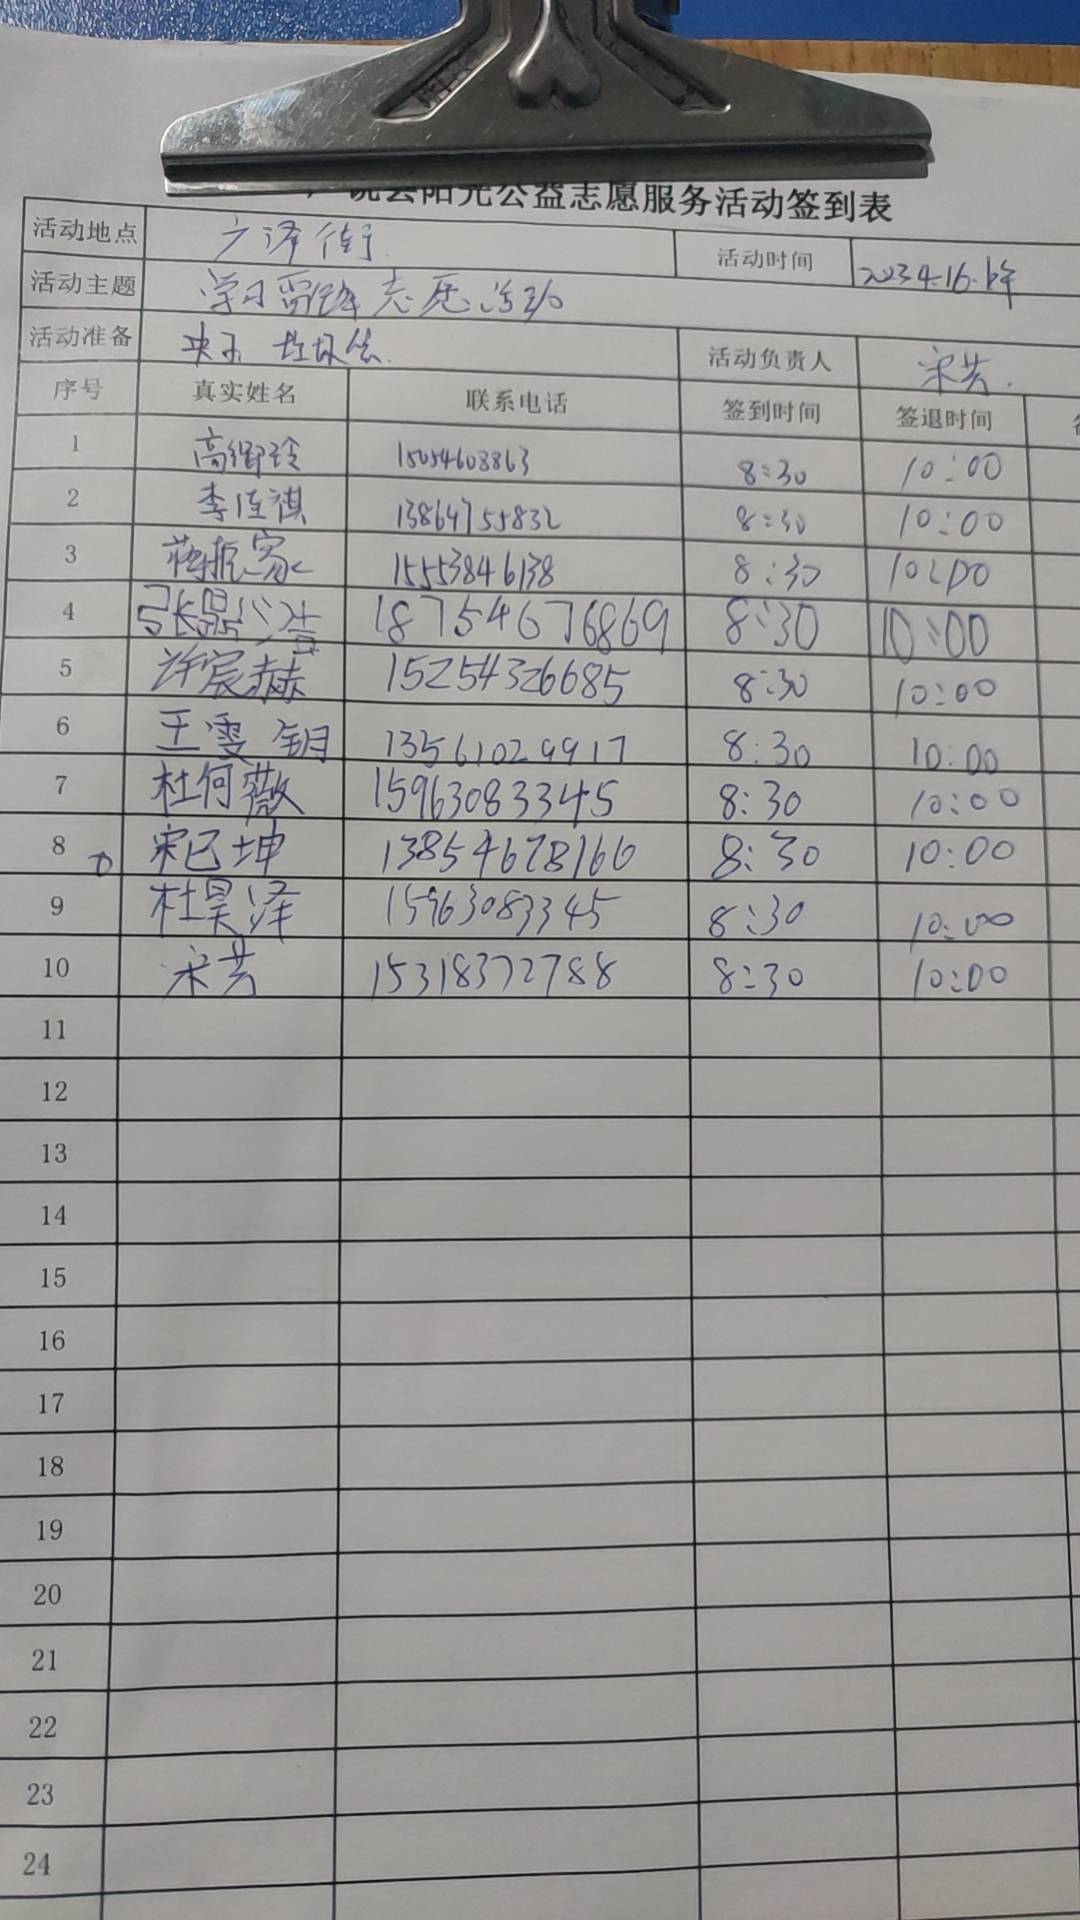 阳光公益志愿服务活动签到表
活动地点 广泽街 活动时间 2023.4.16.上午
活动主题 学习雷锋志愿活动
活动准备 夹子 垃圾袋. 活动负责人 宋芳.
序号 真实姓名 联系电话 签到时间 签退时间
1 15054608863 8:30 10:00
2 李佳祺 13864755832 8:30 10:00
3 15553846138 8:30 10:00
4 18754676869 8:30 10:00
5 许宸赫 15254326685 8:30 10:00
6 王雯钥 13561029917 8:30 10:00
7 杜何薇 15963083345 8:30 10:00
8 宋己坤 13854678166 8:30 10:00
9 杜昊泽 15963083345 8:30 10:00
10 宋芳 15318372788 8:30 10:00
11
12
13
14
15
16
17
18
19
20
21
22
23
24